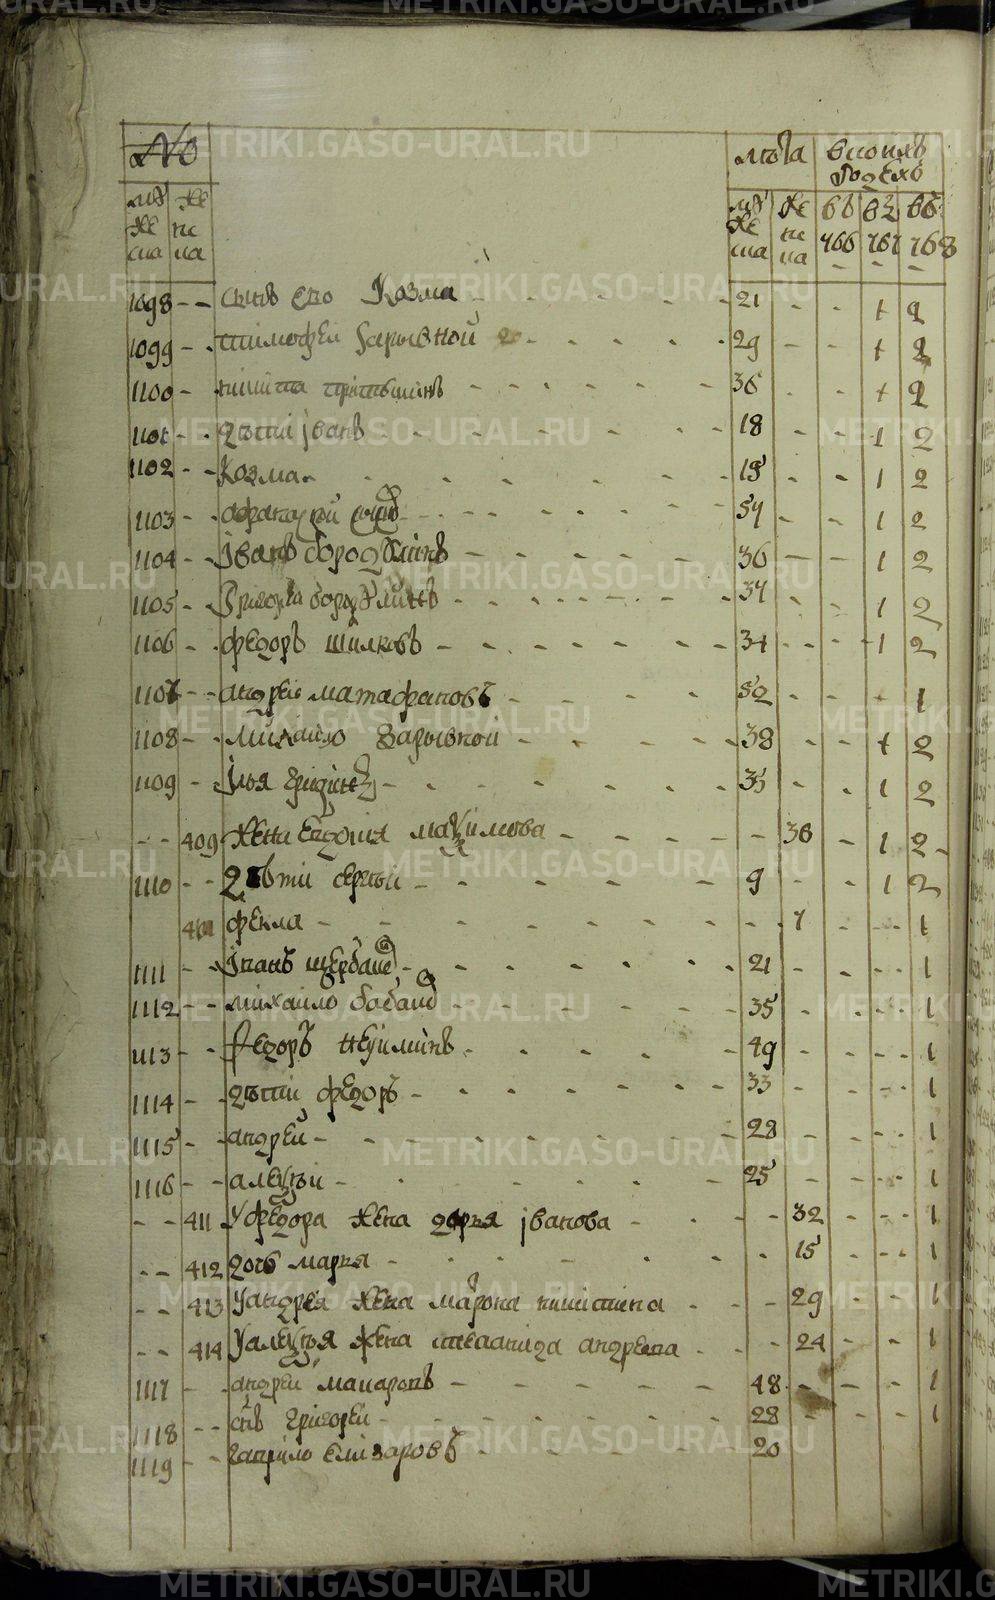 № лѣта
мꙋ же ска же нска мꙋ же ска же нска въ 766 въ 767 въ 768
1098 - - сынъ ево Козма - - 21 - - 1 2
1099 - - тимофеи зарывной - 29 - - 1 2
1100 - - никита - 36 - - 1 2
1101 - - дѣти іванъ - 18 - - 1 2
1102 - - Козма - 15 - - 1 2
1103 - - 54 - - 1 2
1104 - - іванъ бородулинъ - 36 - - 1 2
1105 - - григореи бородулинъ - 34 - - 1 2
1106 - - федоръ шилковъ - 34 - - 1 2
1107 - - андреи матафановъ - 52 - - - 1
1108 - - михаило зарывной - 38 - - 1 2
1109 - - Iлья - 35 - - 1 2
- - 409 жена евдокия максимова - 36 - 1 2
1110 - - дѣти сергѣи - 9 - - 1 2
фекла - 7 - - - 1
1111 - - іванъ щербаков - 21 - - - 1
1112 - - михаило бабанов - 35 - - - 1
1113 - - Ѳедоръ неуиминъ - 49 - - - 1
1114 - - дѣти федоръ - 33 - - - 1
1115 - - андреи - 28 - - - 1
1116 - - алеѯѣи - 25 - - - 1
- - 411 у федора жена дарья іванова - 32 - - - 1
- - 412 дочь марья - 15 - - - 1
- - 413 у андрея жена матрона никитина - 29 - - - 1
- - 414 у алеѯѣя жена степанида андреева - 24 - - 1
1117 - - андреи макаровъ - 48 - - - 1
1118 - - снъ григореи - 28 - - - 1
1119 - - гаврило елизаровъ - 20
METRIKI.GASO-URAL.RU